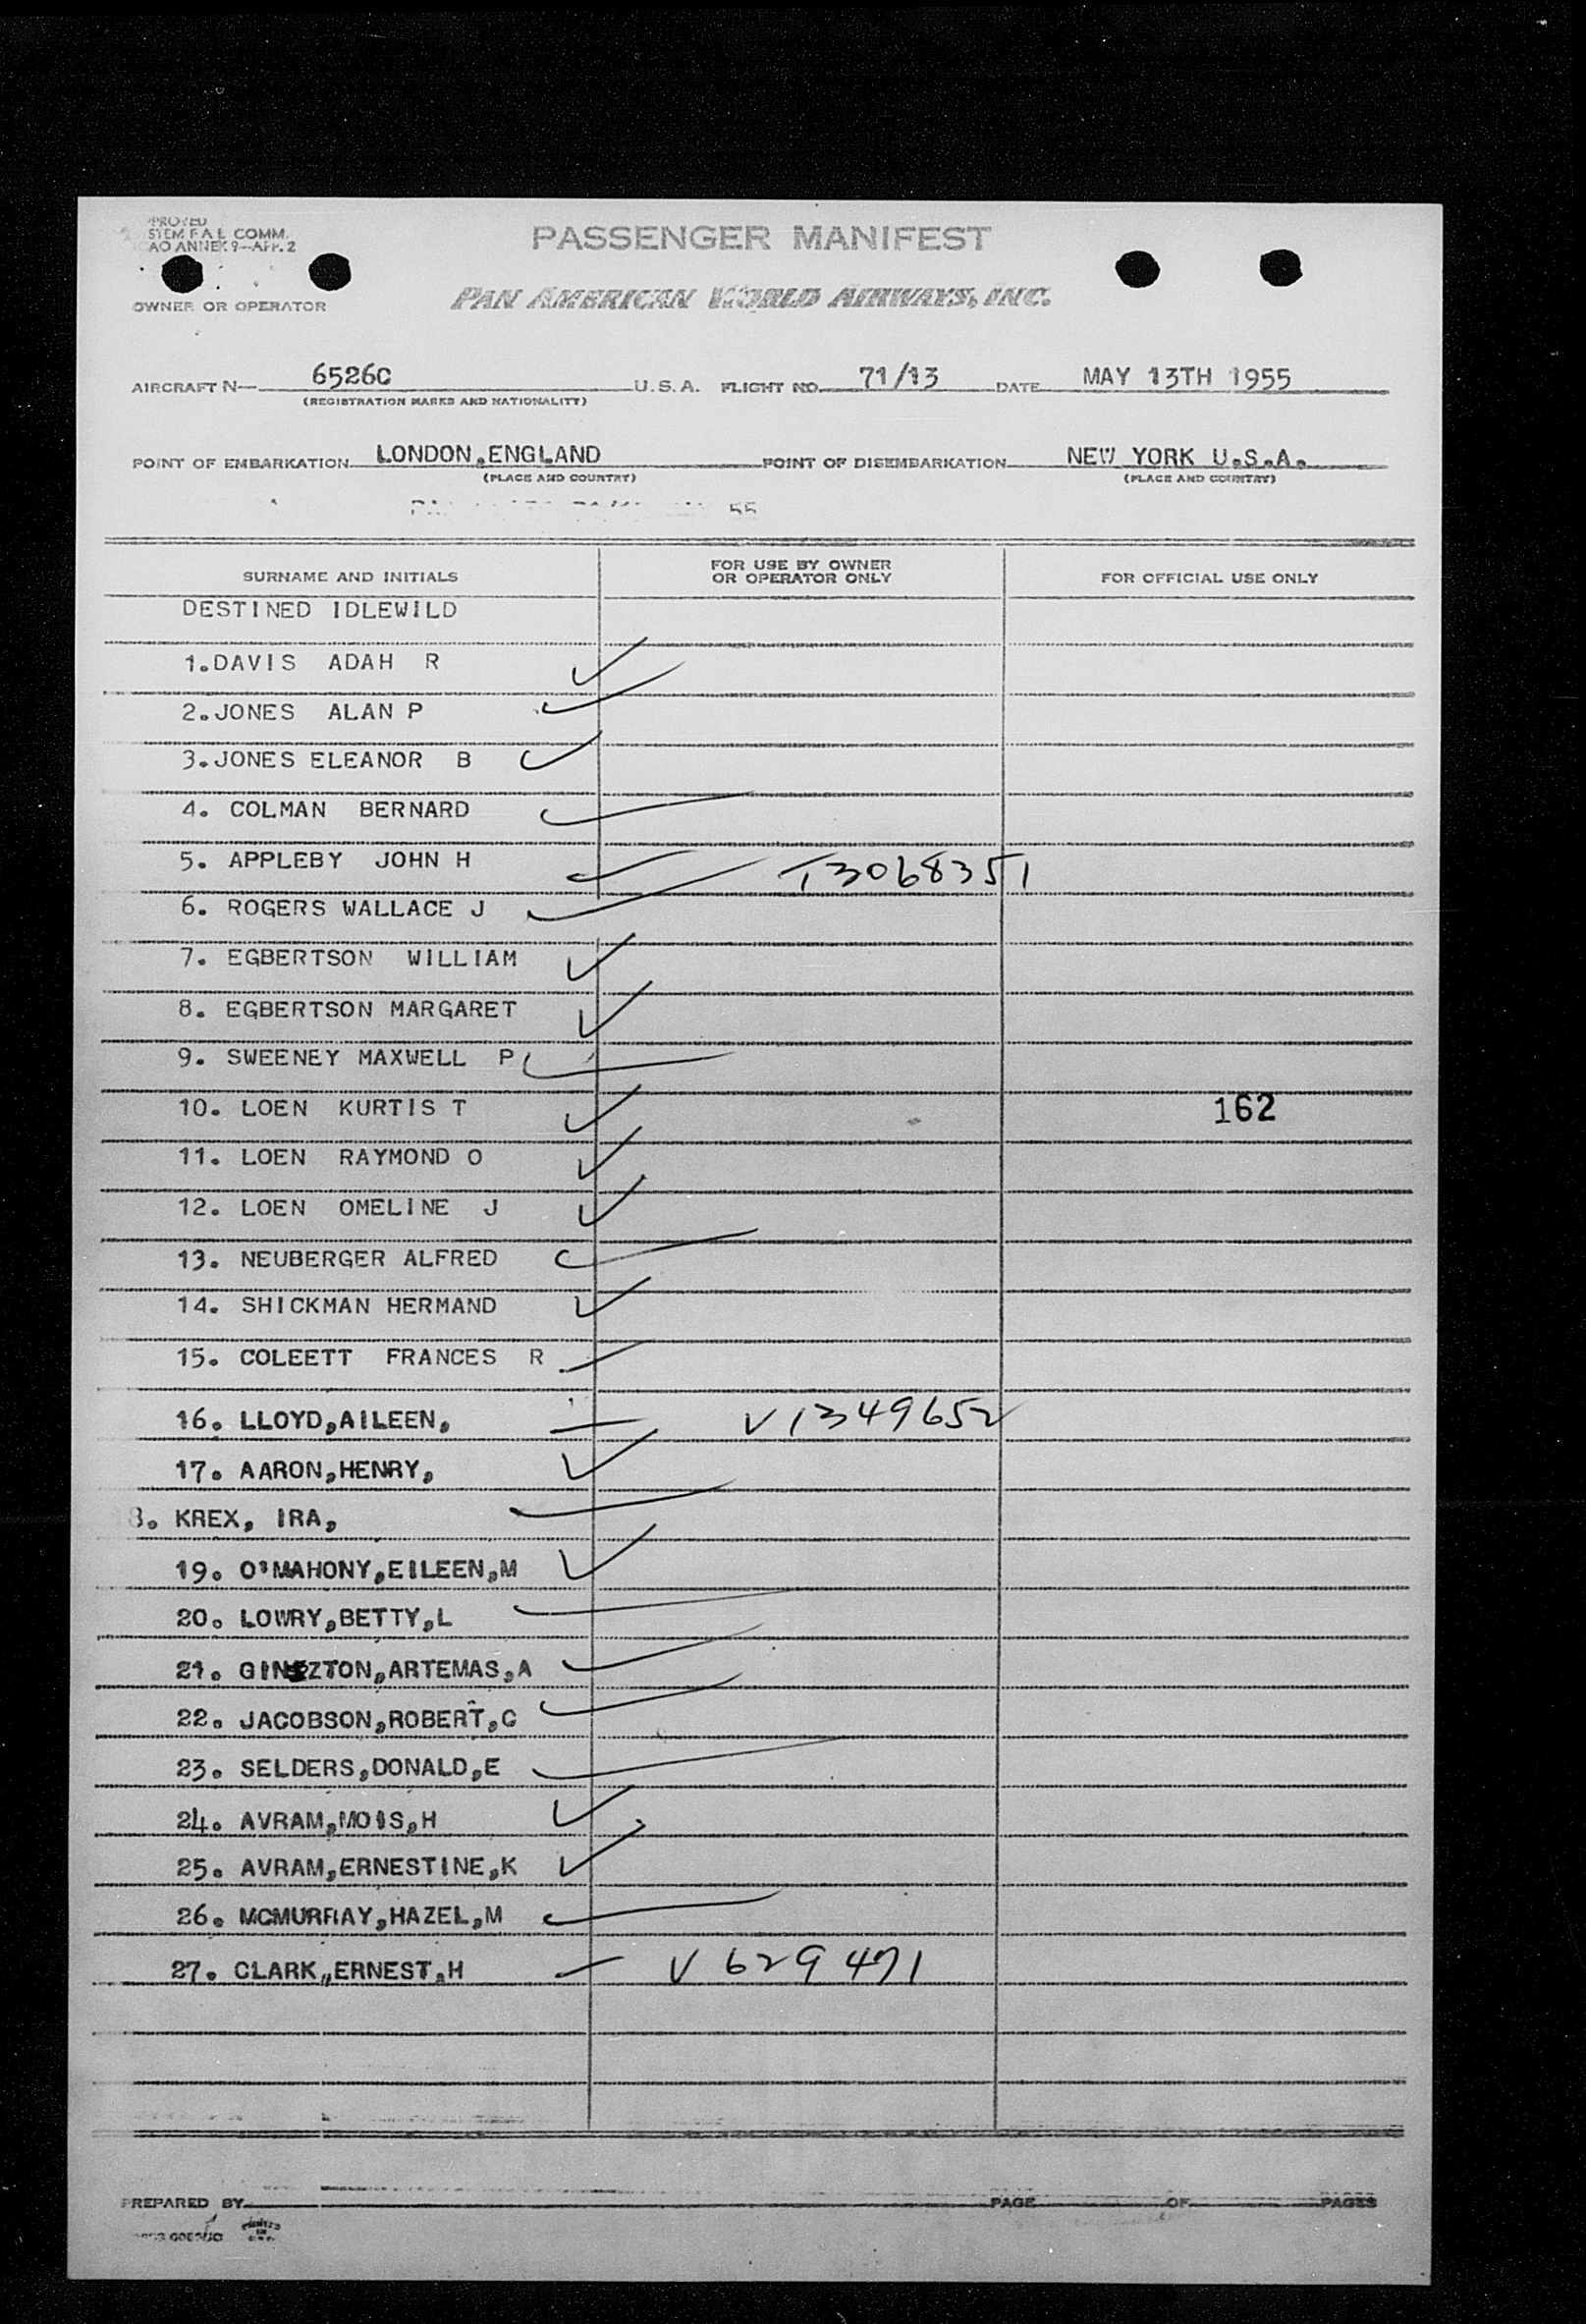 STEM F A L COMM.
AO ANNEX 9—APP. 2
PASSENGER MANIFEST
OWNER OR OPERATOR PAN AMERICAN WORLD AIRWAYS, INC.
AIRCRAFT N— 6526C U.S.A. FLIGHT NO. 71/13 DATE MAY 13TH 1955
(REGISTRATION MARKS AND NATIONALITY)
POINT OF EMBARKATION LONDON,ENGLAND POINT OF DISEMBARKATION NEW YORK U.S.A.
(PLACE AND COUNTRY) (PLACE AND COUNTRY)
55
SURNAME AND INITIALS FOR USE BY OWNER OR OPERATOR ONLY FOR OFFICIAL USE ONLY
DESTINED IDLEWILD
1.DAVIS ADAH R
2.JONES ALAN P
3.JONES ELEANOR B
4. COLMAN BERNARD
5. APPLEBY JOHN H T3068351
6. ROGERS WALLACE J
7. EGBERTSON WILLIAM
8. EGBERTSON MARGARET
9. SWEENEY MAXWELL P
10. LOEN KURTIS T 162
11. LOEN RAYMOND O
12. LOEN OMELINE J
13. NEUBERGER ALFRED
14. SHICKMAN HERMAND
15. COLEETT FRANCES R
16. LLOYD,AILEEN, V1349652
17. AARON,HENRY,
8. KREX, IRA,
19. O'MAHONY,EILEEN,M
20. LOWRY,BETTY,L
21. GINZTON,ARTEMAS,A
22. JACOBSON,ROBERT,C
23. SELDERS,DONALD,E
24. AVRAM,MOIS,H
25. AVRAM,ERNESTINE,K
26. MCMURRAY,HAZEL,M
27. CLARK,,ERNEST,H V 629471
PREPARED BY PAGE OF PAGES
PRINTED IN